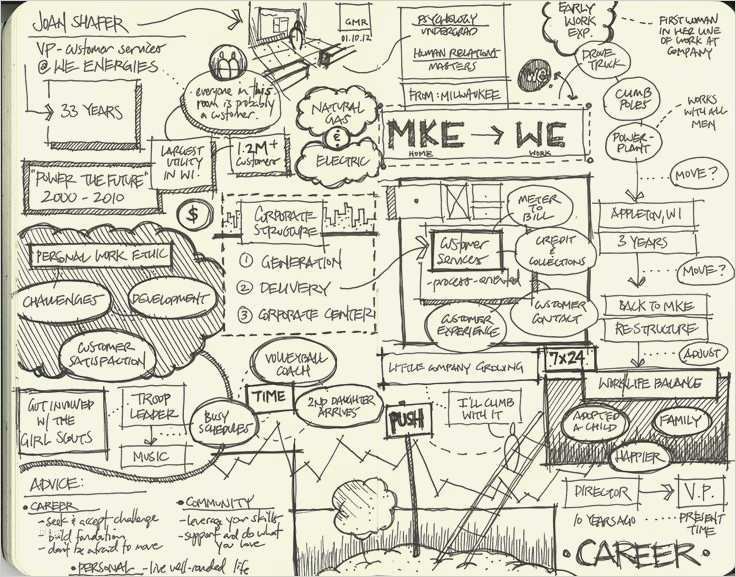 JOAN SHAFER
VP - customer services
@ WE ENERGIES
33 YEARS
everyone in this
room is probably
a customer.
GMR
01.10.12
PSYCHOLOGY
UNDERGRAD
HUMAN RELATIONS
MASTERS
FROM: MILWAUKEE
EARLY
WORK
EXP.
FIRST WOMAN
IN HER LINE
OF WORK AT
COMPANY
WE
DROVE
TRUCK
CLIMB
POLES
WORKS
WITH ALL
MEN
POWER-
PLANT
MOVE?
NATURAL
GAS
&
ELECTRIC
MKE → WE
HOME
WORK
LARGEST
UTILITY
IN WI.
1.2M+
customer
"POWER THE FUTURE"
2000 - 2010
$
CORPORATE
STRUCTURE
1 GENERATION
2 DELIVERY
3 CORPORATE CENTER
METER
TO
BILL
CUSTOMER
SERVICES
-process-oriented
CREDIT
&
COLLECTIONS
CUSTOMER
CONTACT
CUSTOMER
EXPERIENCE
APPLETON, WI
3 YEARS
MOVE?
BACK TO MKE
RE-STRUCTURE
ADJUST
PERSONAL WORK ETHIC
CHALLENGES
DEVELOPMENT
CUSTOMER
SATISFACTION
VOLLEYBALL
COACH
TIME
2ND DAUGHTER
ARRIVES
BUSY
SCHEDULES
GOT INVOLVED
W/ THE
GIRL SCOUTS
TROOP
LEADER
MUSIC
LITTLE COMPANY GROWING
7x24
PUSH
I'LL CLIMB
WITH IT
WORK LIFE BALANCE
ADOPTED
A CHILD
FAMILY
HAPPIER
DIRECTOR
V.P.
10 YEARS AGO
PRESENT
TIME
• CAREER •
ADVICE:
• CAREER
- seek & accept challenge
- build foundation
- don't be afraid to move
• COMMUNITY
- leverage your skills
- support and do what
you love
• PERSONAL - live well-rounded life